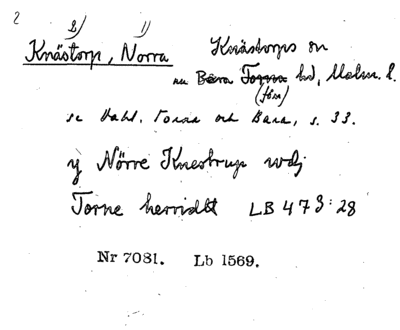 2
2) 1)
Knästorp, Norra Knästorps sn
nu Bara Torna hd, Malm. l.
(förr)
se Dahl, Torna och Bara, s. 33.
y Nörre Knestrup wdj
Torne herridt LB 473:28
Nr 7081. Lb 1569.